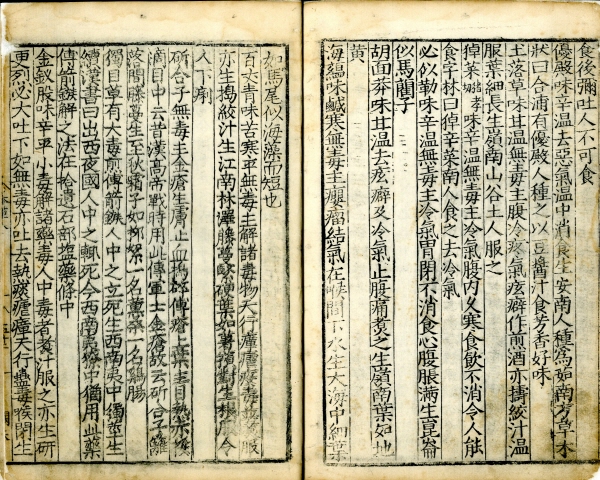 食後彌吐人不可食
優殿味辛溫去惡氣溫中消食生安南人種為茹南方草木
狀曰合浦有優殿人種之以豆醬汁食芳香好味
土落草味甘溫無毒主腹冷疼氣痃癖作煎酒亦擣絞汁溫
服葉細長生嶺南山谷土人服之
味辛溫無毒主冷氣腹內久寒食飲不消令人能
食字林曰辛菜南人食之去冷氣
必似勒味辛溫無毒主冷氣胃閉不消食心腹脹滿生崑崙
似馬藺子
胡面莽味甘溫去痃癖及冷氣止腹痛煮之生嶺南葉如地
黃
海蘊味鹹寒無毒主癭瘤結氣在喉間下水生大海中細葉
如馬尾似海藻而短也
百丈青味苦寒平無毒主解諸毒物天行瘴瘧疫毒服
亦生搗絞汁生江南林澤藤蔓葉如對生根服令
人下痢
斫合子無毒主金瘡生膚止血搗傅瘡上葉主目熱
滴目中云昔漢高帝戰時用此傅軍士金瘡故云斫合子籬
間藤蔓生至秋霜子如柳絮一名一名雞腸
獨自草有大毒煎傅箭鏃人中之立死生西南夷中獨莖生
續漢書曰出西夜國人中之輒死今西南夷中猶用此藥
傅箭鏃解之法在拾遺石部鹽藥條中
金釵股味辛平小毒解諸藥毒人中毒者煮汁服之亦生研
更烈必大吐下如無毒亦吐去熱痰瘧瘴天行蠱毒喉閉生